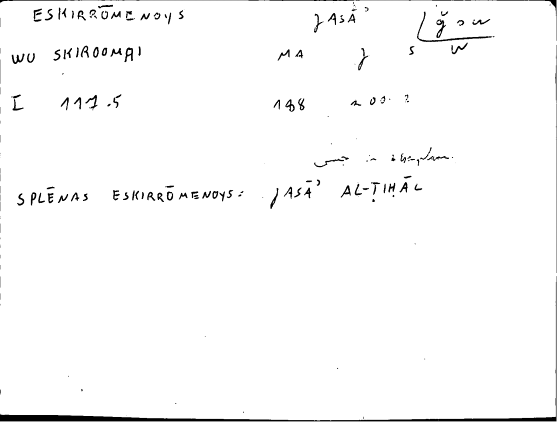 ESKIRRŌMENOYS ǧASĀʾ ǧ s w
WU SKIROOMAI MA ǧ s w
I 117.5 188 200.2
in
SPLĒNAS ESKIRRŌMENOYS: ǧASĀʾ AL-ṬIḤĀL